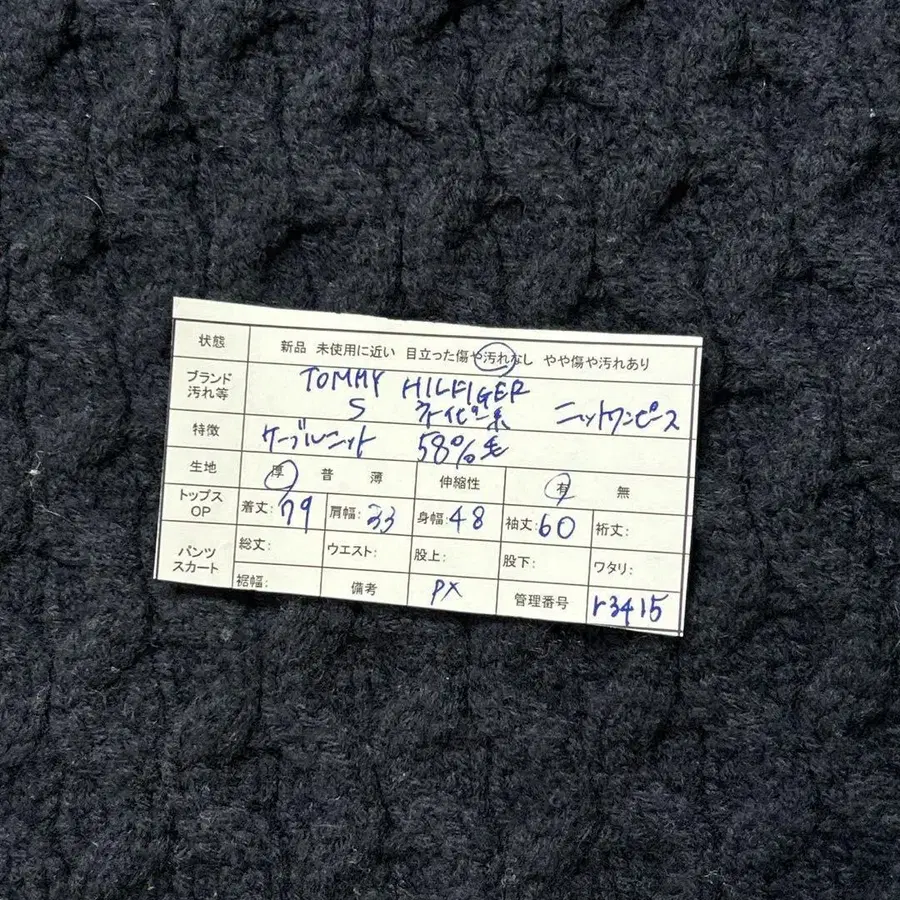 状態 新品 未使用に近い 目立った傷や汚れなし やや傷や汚れあり
ブランド 汚れ等 TOMMY HILFIGER
S ネイビー系 ニットワンピース
特徴 ケーブルニット 58% 毛
生地 厚 普 薄 伸縮性 有 無
トップス OP 着丈: 79 肩幅: 33 身幅: 48 袖丈: 60 裄丈:
パンツ スカート 総丈: ウエスト: 股上: 股下: ワタリ:
裾幅: 備考 PX 管理番号 r3415